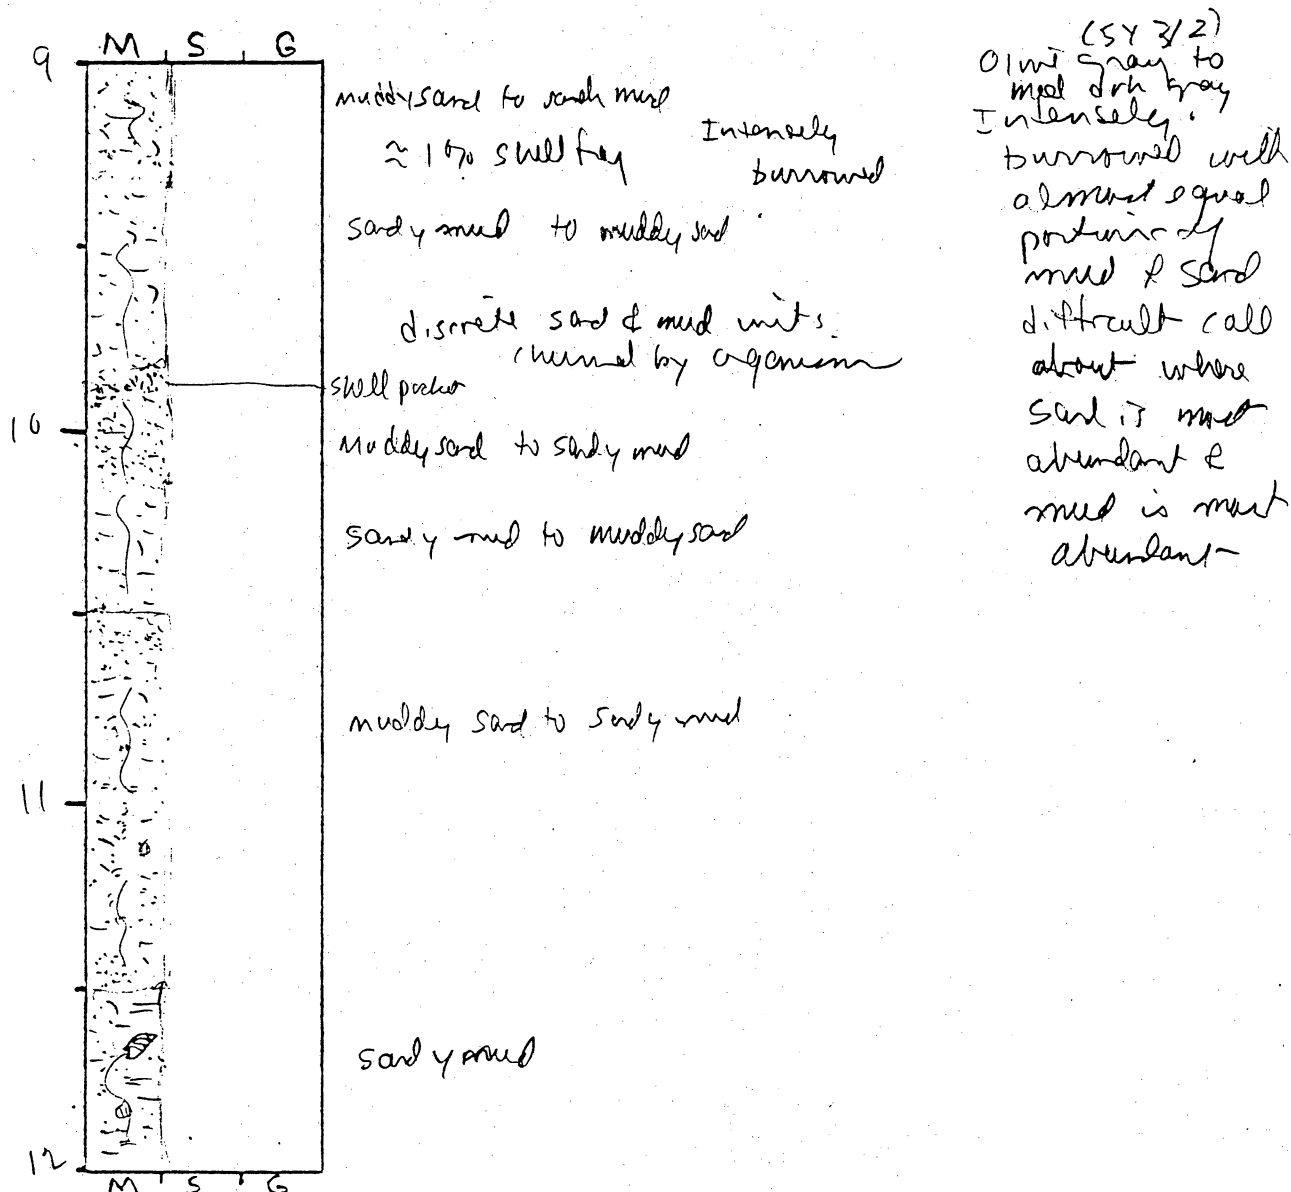 M S G
9
muddy sand to sandy mud
≈ 1% shell frag
Intensely
burrowed
sandy mud to muddy sand
discrete sand & mud units
churned by organism
shell pocket
10
Muddy sand to sandy mud
sandy mud to muddy sand
muddy sand to sandy mud
11
sandy mud
12
M S G
(5Y 3/2)
Olive gray to
med drk gray
Intensely
burrowed with
almost equal
portions of
mud & sand
difficult call
about where
sand is most
abundant &
mud is most
abundant